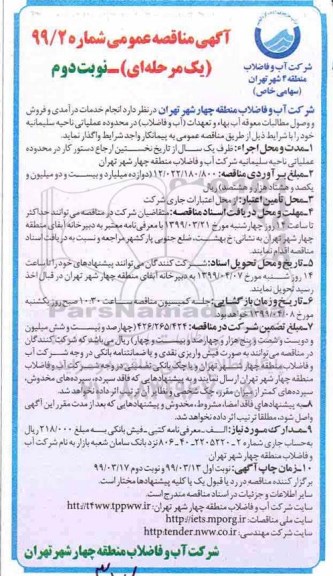 آگهی مناقصه عمومی شماره ۹۹/۲
(یک مرحله‌ای) - نوبت دوم
شرکت آب و فاضلاب
منطقه ۴ شهر تهران
(سهامی خاص)
شرکت آب و فاضلاب منطقه چهار شهر تهران در نظر دارد انجام خدمات درآمدی و فروش
و وصول مطالبات معوقه آب بهاء و تعهدات (آب و فاضلاب) در محدوده عملیاتی ناحیه سلیمانیه
خود را با شرایط ذیل از طریق مناقصه عمومی به پیمانکار واجد شرایط واگذار نماید.
۱- مدت و محل اجرا: ظرف یک سال از تاریخ نخستین ارجاع دستور کار در محدوده
عملیاتی ناحیه سلیمانیه شرکت آب و فاضلاب منطقه چهار شهر تهران
۲- مبلغ برآوردی مناقصه: ۱۲/۰۲۲/۱۸۰/۸۰۰ (دوازده میلیارد و بیست و دو میلیون و
یکصد و هشتاد هزار و هشتصد) ریال
۳- محل تأمین اعتبار: از محل اعتبارات جاری شرکت
۴- مهلت و محل دریافت اسناد مناقصه: متقاضیان شرکت در مناقصه می توانند حداکثر
تا ساعت ۱۴ روز چهارشنبه مورخ ۱۳۹۹/۰۳/۲۱ با معرفی نامه معتبر به دبیرخانه آبفای منطقه
چهار شهر تهران به نشانی: خ بهشت، ضلع جنوبی پارک شهر مراجعه و نسبت به دریافت اسناد
مناقصه اقدام نمایند.
۵- تاریخ و محل تحویل اسناد: شرکت کنندگان می توانند پیشنهادهای خود را تا ساعت
۱۴ روز شنبه مورخ ۱۳۹۹/۰۴/۰۷ به دبیرخانه آبفای منطقه چهار شهر تهران در قبال اخذ
رسید تحویل نمایند.
۶- تاریخ و زمان بازگشایی: جلسه کمیسیون مناقصه ساعت ۱۰:۳۰ صبح روز یکشنبه
مورخ ۱۳۹۹/۰۴/۰۸ خواهد بود.
۷- مبلغ تضمین شرکت در مناقصه: ۴۲۶/۲۶۵/۴۲۴ (چهارصد و بیست و شش میلیون
و دویست و شصت و پنج هزار و چهارصد و بیست و چهار) ریال می باشد که شرکت کنندگان
در مناقصه می توانند به صورت فیش واریزی نقدی و یا ضمانتنامه بانکی در وجه شرکت آب
و فاضلاب منطقه چهار شهر تهران و یا چک بانکی تضمینی در وجه شرکت آب و فاضلاب
منطقه چهار شهر تهران ارسال نمایند و به پیشنهادهایی که فاقد سپرده، سپرده‌های مخدوش،
سپرده‌های کمتر از میزان مقرر، چک شخصی و نظایر آن ترتیب اثر داده نخواهد شد.
۸- به پیشنهادهای فاقد امضا، مشروط، مخدوش و پیشنهادهایی که بعد از مدت مقرر این آگهی
واصل شود، مطلقا ترتیب اثر داده نخواهد شد.
۹- مدارک مورد نیاز: الف- معرفی نامه کتبی - فیش بانکی به مبلغ ۲۱۸/۰۰۰ ریال
به حساب جاری شماره ۲-۲۲۰۵۲۲۰-۴۰-۸۰۶ نزد بانک سامان شعبه یازار به نام شرکت آب و
فاضلاب منطقه چهار شهر تهران
۱۰- زمان چاپ آگهی: نوبت اول ۹۹/۰۳/۱۳ و نوبت دوم ۹۹/۰۳/۱۷
برگزار کننده مناقصه در رد یا قبول یک یا کلیه پیشنهادها مختار است.
سایر اطلاعات و جزئیات در اسناد مناقصه مندرج است.
سایت شرکت آب و فاضلاب منطقه چهار شهر تهران: htt://t۴ww.tppww.ir
سایت ملی مناقصات: http://iets.mporg.ir
سایت شرکت مهندسی: http:tender.nww.co.ir
شرکت آب و فاضلاب منطقه چهار شهر تهران